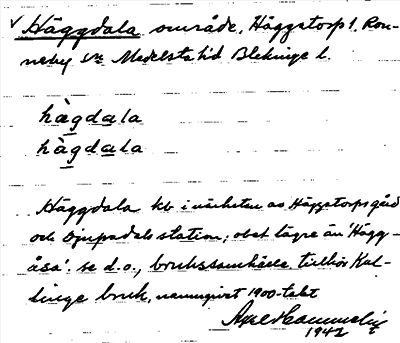 √ Häggdala område, Häggatorp 1, Ron-
neby sn Medelsta hd Blekinge l.
hàgdala
hàgdala
Häggdala kb i närheten av Häggatorps gård
och Djupadals station; obet. lägre än 'Hägg-
åsa'. se d.o., brukssamhälle, tillhör Kal-
linge bruk, namngivet 1900-talet
Axel
1942